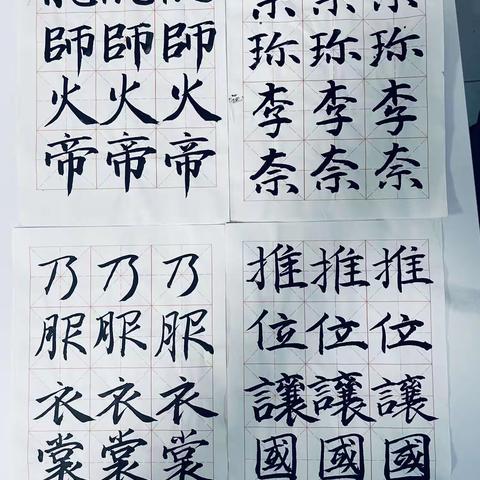 師師師
火火火
帝帝帝
珎珎珎
李李李
奈奈奈
乃乃乃
服服服
衣衣衣
裳裳裳
推推推
位位位
讓讓讓
國國國